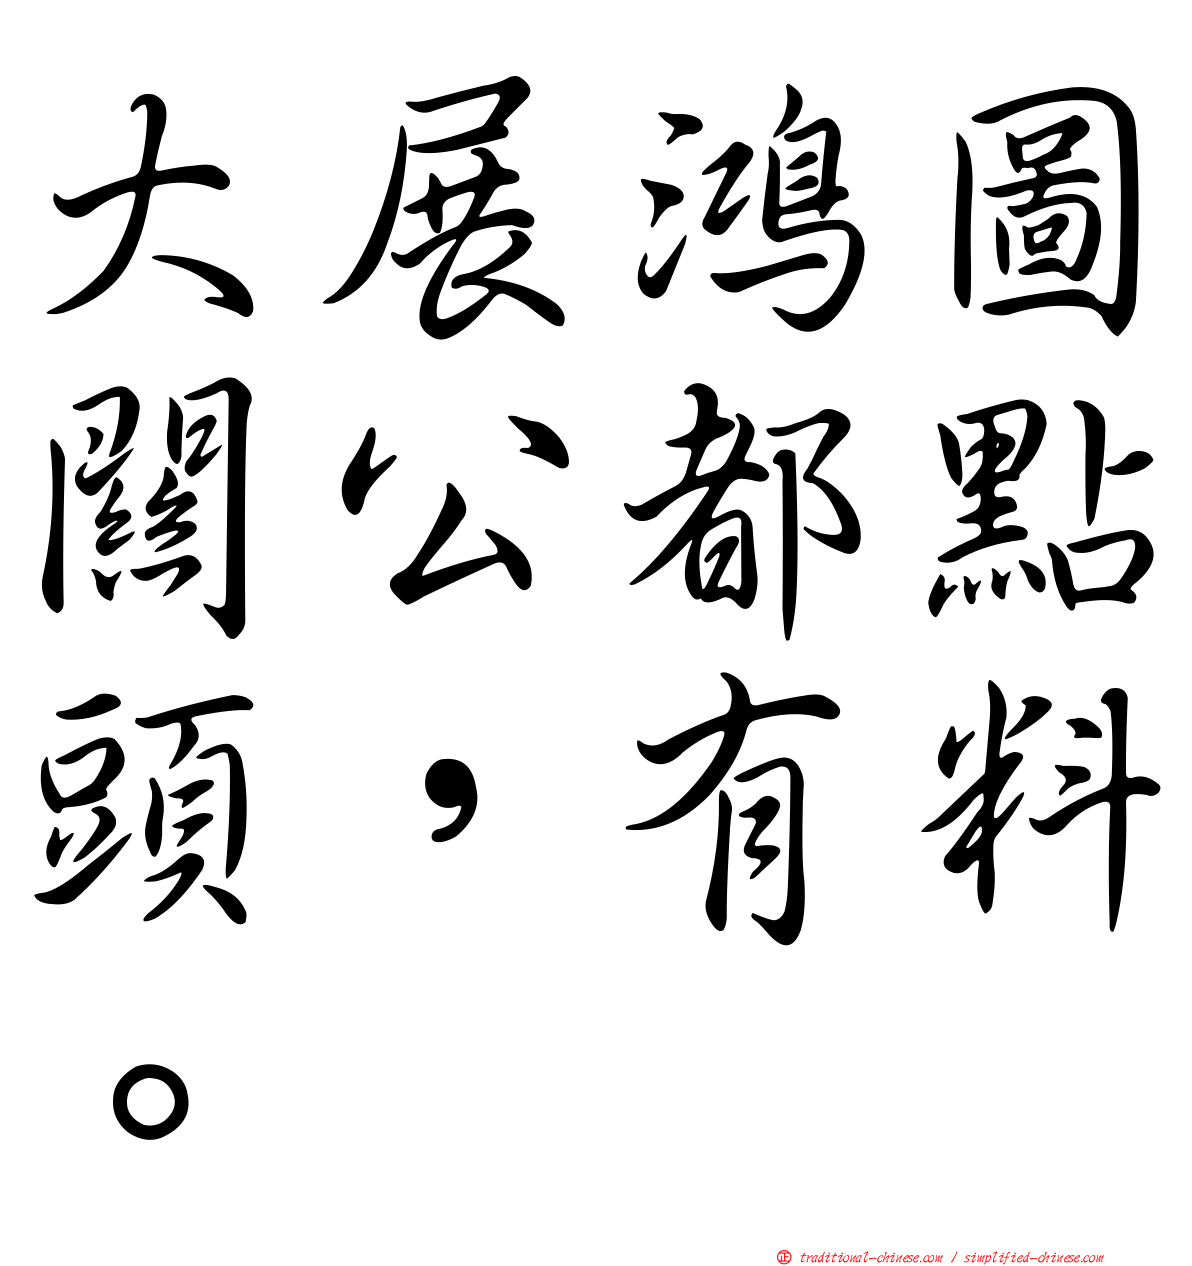 大展鴻圖
關公都點
頭，有料
。
正 traditional-chinese.com / simplified-chinese.com